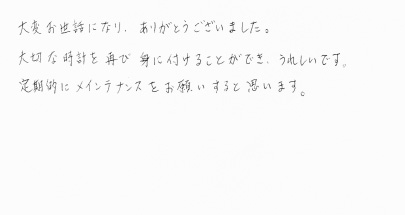 大変お世話になり、ありがとうございました。
大切な時計を再び身に付けることができ、うれしいです。
定期的にメインテナンスをお願いすると思います。